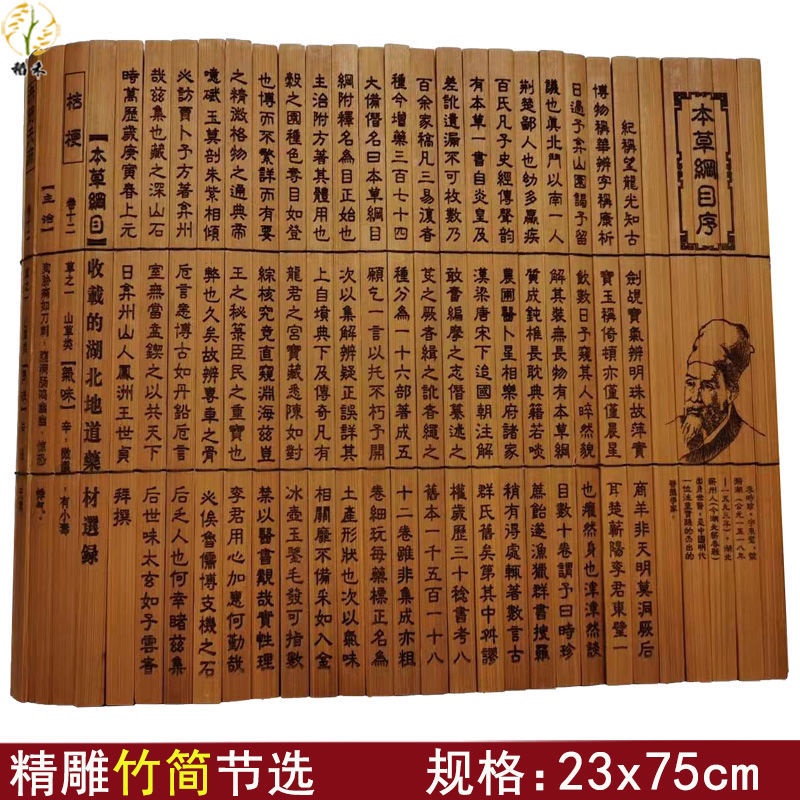 稻禾
本草綱目序
李時珍，字東璧，號
瀕湖（公元一五一八年
—一五九三年），湖北
蘄州人（今湖北蘄春縣）
出身世醫，是中國明代
一位注重實踐的杰出的
醫藥學家。
紀稱望龍光知古劍覘寶氣辨明珠故萍實商羊非天明莫洞厥后
博物稱華辨字稱康析寶玉稱倚頓亦僅僅晨星耳楚蘄陽李君東璧一
日過予弇山園謁予留飲數日予窺其人睟然貌也癯然身也津津然談
議也真北鬥以南一人解其裝無長物有本草綱目數十卷謂予曰時珍
荊楚鄙人也幼多羸疾質成鈍椎長耽典籍若啖蔗飴遂漁獵群書搜羅
百氏凡子史經傳聲韵農圃醫卜星相樂府諸家稍有得處輒著數言古
有本草一書自炎皇及漢梁唐宋下迨國朝注解群氏舊矣第其中舛謬
差訛遺漏不可枚數乃敢奮編摩之志僭纂述之權歲歷三十稔書考八
百余家稿凡三易復者芟之厥者緝之訛者繩之舊本一千五百一十八
種今增藥三百七十四種分為一十六部著成五十二卷雖非集成亦粗
大備僭名曰本草綱目願乞一言以托不朽予開卷細玩每藥標正名為
綱附釋名為目正始也次以集解辨疑正誤詳其土產形狀也次以氣味
主治附方著其體用也上自墳典下及傳奇凡有相關靡不備采如入金
穀之園種色奪目如登龍君之宮寶藏悉陳如對冰壺玉鑒毛發可指數
也博而不繁詳而有要綜核究竟直窺淵海茲豈禁以醫書覯哉實性理
之精微格物之通典帝王之秘箓臣民之重寶也李君用心加惠何勤哉
噫碔玉莫剖朱紫相傾弊也久矣故辨專車之骨必俟魯儒博支機之石
必訪賈卜予方著弇州卮言恚博古如丹鉛卮言后乏人也何幸睹茲集
哉茲集也藏之深山石室無當盍鍥之以共天下后世味太玄如子雲者
時萬歷歲庚寅春上元日弇州山人鳳洲王世貞拜撰
【本草綱目】收載的湖北地道藥材選録
桔梗 卷十二 草之一 山草類【氣味】辛，微溫，有小毒
【主治】胸脅痛如刀刺，腹滿腸鳴幽幽，驚恐悸氣。
精雕竹简节选 规格:23x75cm